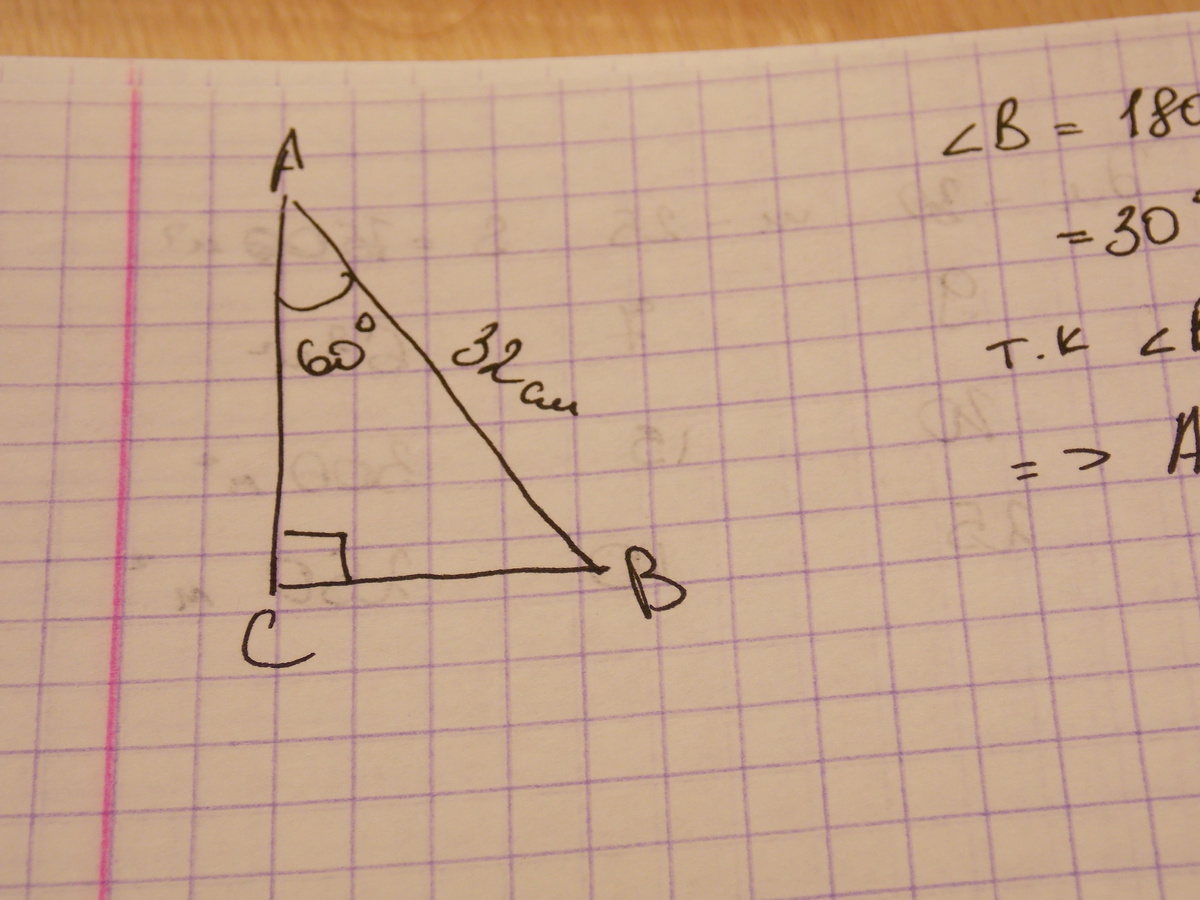 A
60°
32 см
C
B
∠B = 180
= 30°
т.к ∠B
=> A